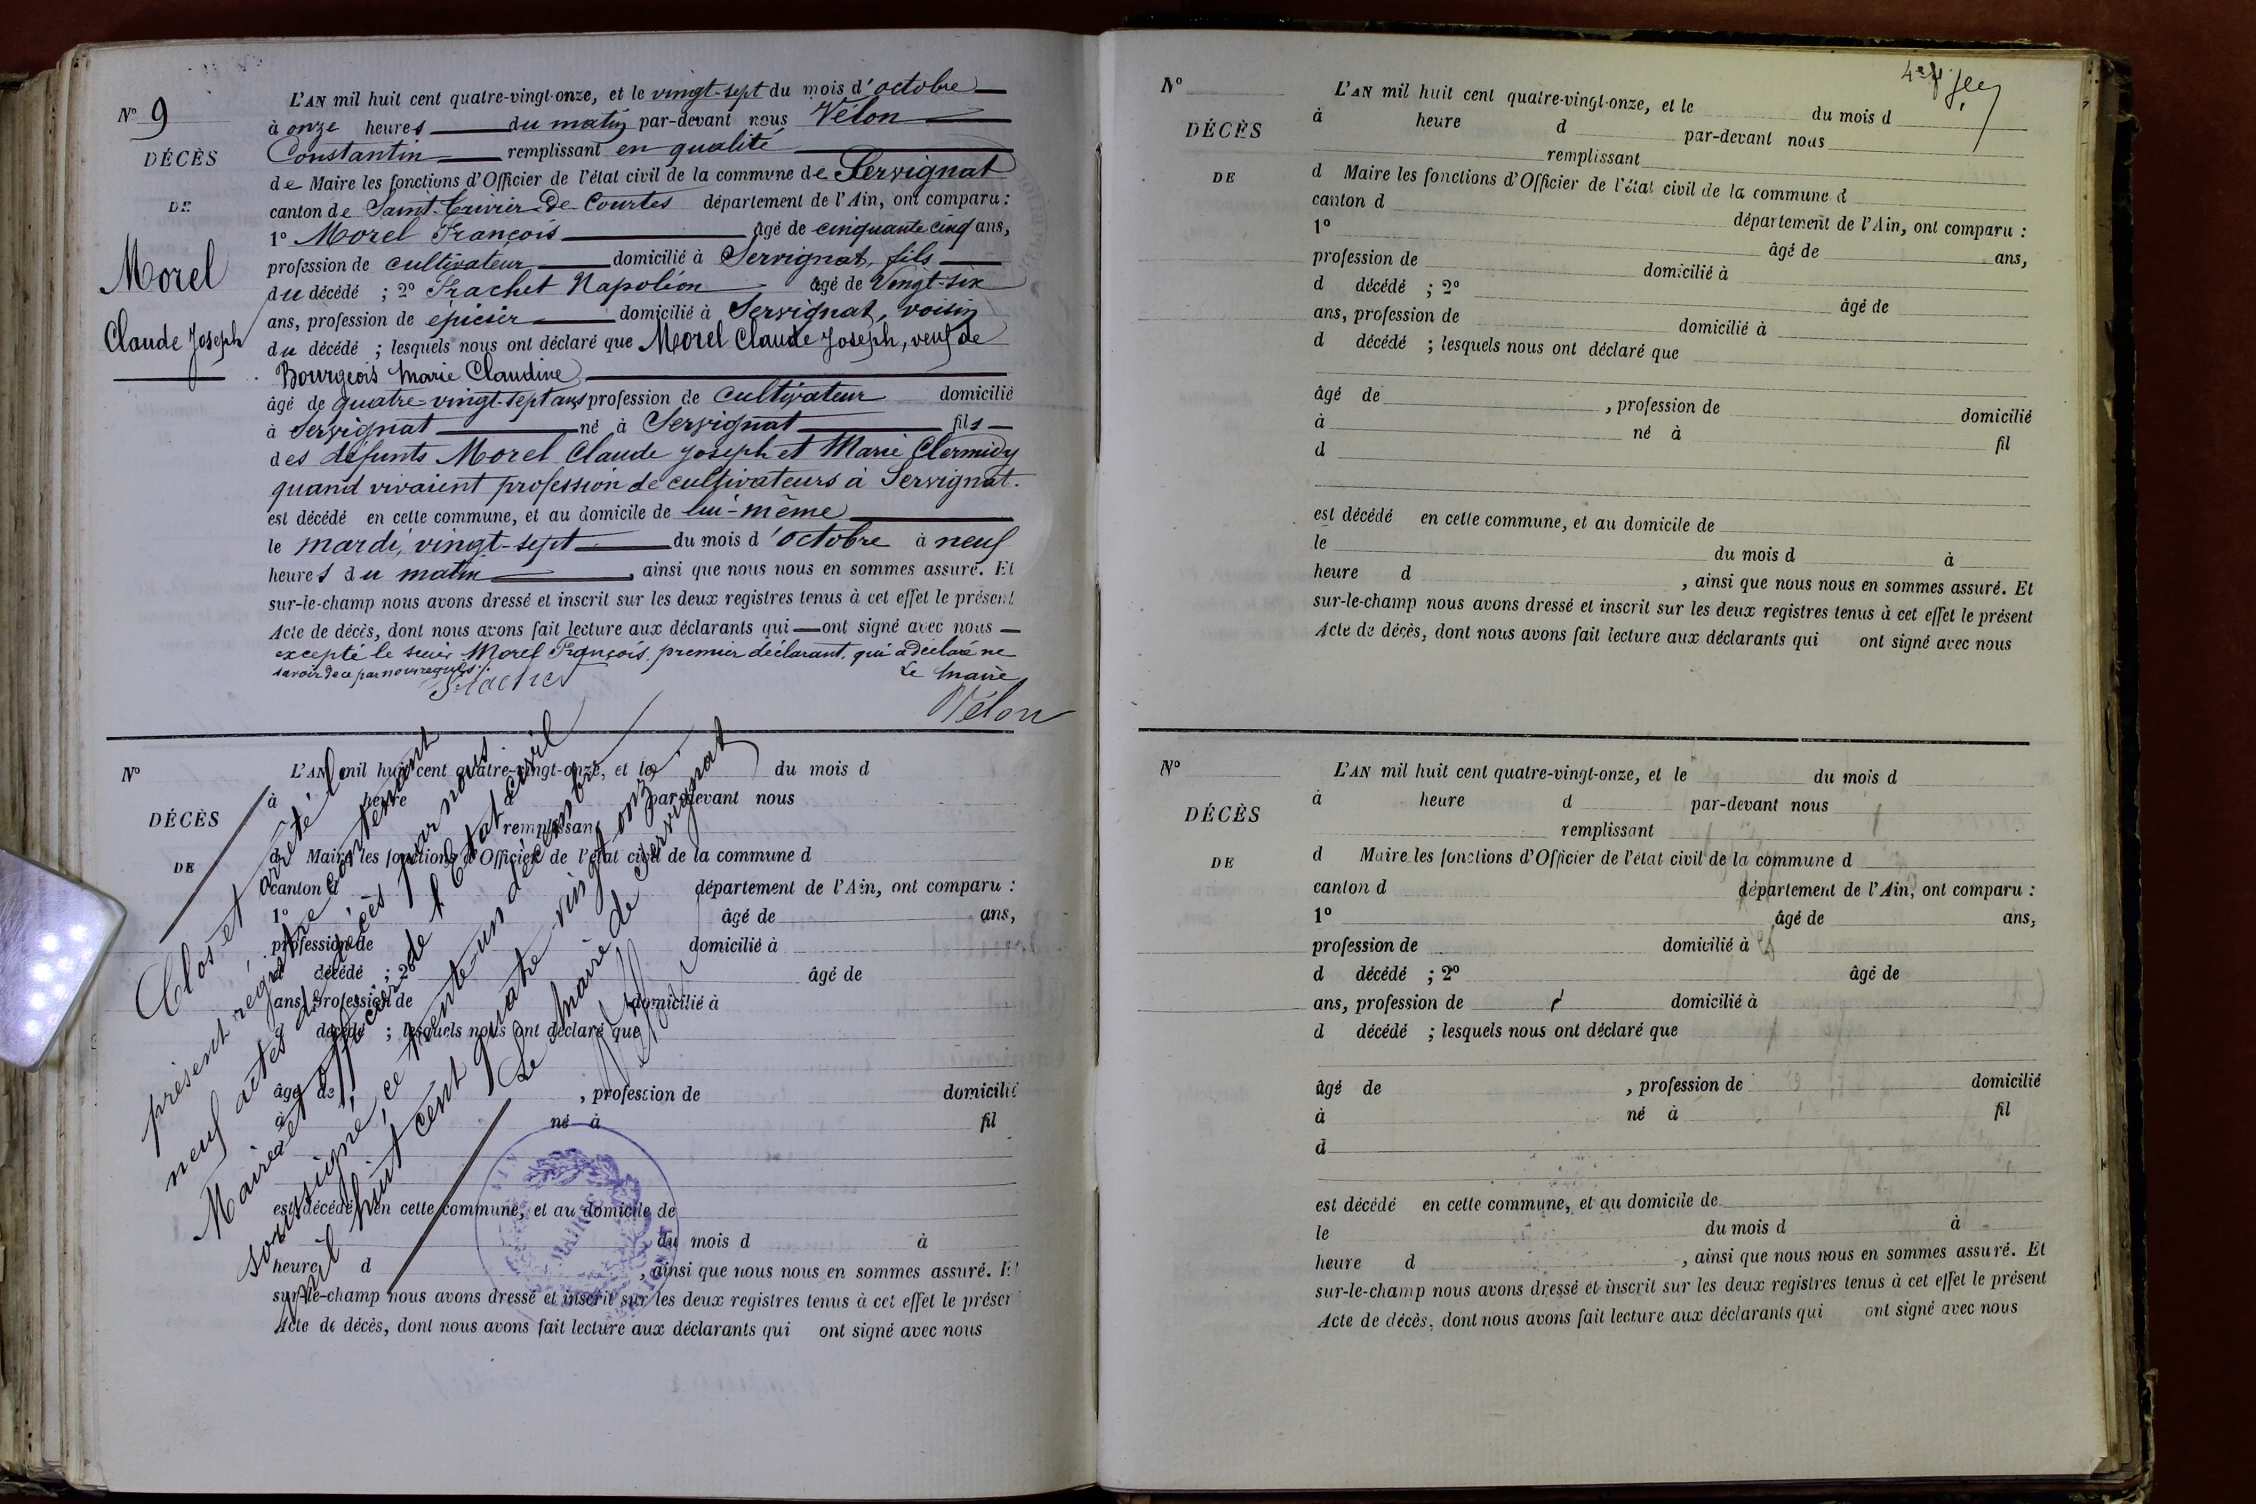 N° 9
DÉCÈS
DE
Morel
Claude Joseph
L'AN mil huit cent quatre-vingt-onze, et le vingt-sept du mois d'octobre
à onze heures du matin par-devant nous Vélon
Constantin remplissant en qualité
de Maire les fonctions d'Officier de l'état civil de la commune de Servignat
canton de Saint-Trivier-De-Courtes département de l'Ain, ont comparu :
1° Morel François âgé de cinquante cinq ans,
profession de cultivateur domicilié à Servignat, fils
du décédé ; 2° Frachet Napoléon âgé de Vingt-six
ans, profession de épicier domicilié à Servignat, voisin
du décédé ; lesquels nous ont déclaré que Morel Claude Joseph, veuf de
Bourgeois Marie Claudine
âgé de quatre-vingt-sept ans profession de cultivateur domicilié
à Servignat né à Servignat fils
des défunts Morel Claude Joseph et Marie Clermidy
quand vivaient profession de cultivateurs à Servignat.
est décédé en cette commune, et au domicile de lui-même
le mardi, vingt-sept du mois d'octobre à neuf
heures du matin, ainsi que nous nous en sommes assuré. Et
sur-le-champ nous avons dressé et inscrit sur les deux registres tenus à cet effet le présent
Acte de décès, dont nous avons fait lecture aux déclarants qui ont signé avec nous
excepté le sieur Morel François, premier déclarant, qui a déclaré ne
savoir de ce par nous requis.
Le Maire
Frachet
Vélon
N°
DÉCÈS
DE
L'AN mil huit cent quatre-vingt-onze, et le du mois d
à heure par-devant nous
remplissant
d Maire les fonctions d'Officier de l'état civil de la commune d
canton d département de l'Ain, ont comparu :
1° âgé de ans,
profession de domicilié à
d décédé ; 2° âgé de
ans, profession de domicilié à
d décédé ; lesquels nous ont déclaré que
âgé de , profession de domicilié
à né à fil
est décédé en cette commune, et au domicile de
du mois d à
heure d , ainsi que nous nous en sommes assuré. Et
sur-le-champ nous avons dressé et inscrit sur les deux registres tenus à cet effet le présen
Acte de décès, dont nous avons fait lecture aux déclarants qui ont signé avec nous
Clos et arrêté le
présent registre contenant
neuf actes de décès par nous
Maire et officier de l'Etat civil
soussigné, ce trente-un décembre
mil huit cent quatre vingt onze.
Le Maire de Servignat
MAIRIE
AIN
N°
DÉCÈS
DE
L'AN mil huit cent quatre-vingt-onze, et le du mois d
à heure d par-devant nous
remplissant
d Maire les fonctions d'Officier de l'état civil de la commune d
canton d département de l'Ain, ont comparu :
1° âgé de ans,
profession de domicilié à
d décédé ; 2° âgé de
ans, profession de domicilié à
d décédé ; lesquels nous ont déclaré que
âgé de , profession de domicilié
à né à fil
d
est décédé en cette commune, et au domicile de
le du mois d à
heure d , ainsi que nous nous en sommes assuré. Et
sur-le-champ nous avons dressé et inscrit sur les deux registres tenus à cet effet le présent
Acte de décès, dont nous avons fait lecture aux déclarants qui ont signé avec nous
N°
DÉCÈS
DE
L'AN mil huit cent quatre-vingt-onze, et le du mois d
à heure d par-devant nous
remplissant
d Maire les fonctions d'Officier de l'état civil de la commune d
canton d département de l'Ain, ont comparu :
1° âgé de ans,
profession de domicilié à
d décédé ; 2° âgé de
ans, profession de domicilié à
d décédé ; lesquels nous ont déclaré que
âgé de , profession de domicilié
à né à fil
d
est décédé en cette commune, et au domicile de
le du mois d à
heure d , ainsi que nous nous en sommes assuré. Et
sur-le-champ nous avons dressé et inscrit sur les deux registres tenus à cet effet le présent
Acte de décès, dont nous avons fait lecture aux déclarants qui ont signé avec nous